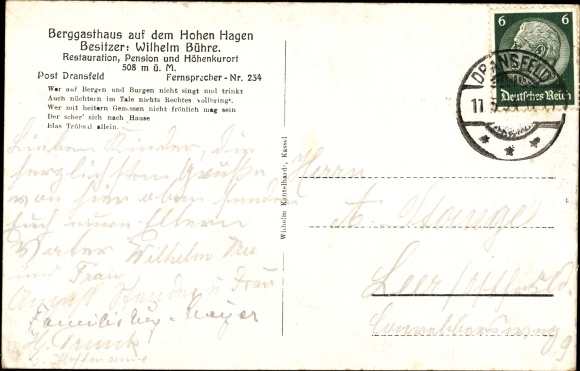 Berggasthaus auf dem Hohen Hagen
Besitzer: Wilhelm Bühre.
Restauration, Pension und Höhenkurort
508 m ü. M.
Post Dransfeld Fernsprecher-Nr. 234
Wer auf Bergen und Burgen nicht singt und trinkt
Auch nüchtern im Tale nichts Rechtes vollbringt.
Wer mit heitern Genossen nicht fröhlich mag sein
Der scher' sich nach Hause
Blas Trübsal allein.
Lieben Kinder, die
herzlichsten Grüße
von hier oben senden
Euch
Vater Wilhelm
und Frau
und Frau
Familie Meyer
Hoffmann
Wilhelm Kantelhardt, Kassel
6 6
Deutsches Reich
DRANSFELD
Herrn
A. Stange
Leer